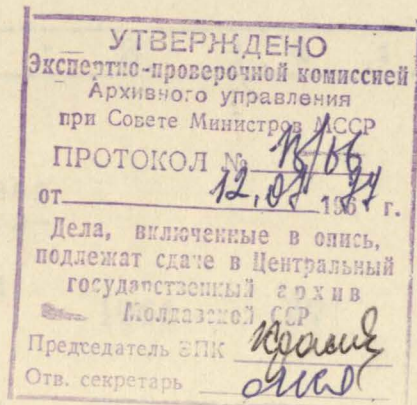 УТВЕРЖДЕНО
Экспертно-проверочной комиссией
Архивного управления
при Совете Министров МССР
ПРОТОКОЛ №
от 196 г.
Дела, включенные в опись,
подлежат сдаче в Центральный
государственный архив
Молдавской ССР
Председатель ЭПК
Отв. секретарь